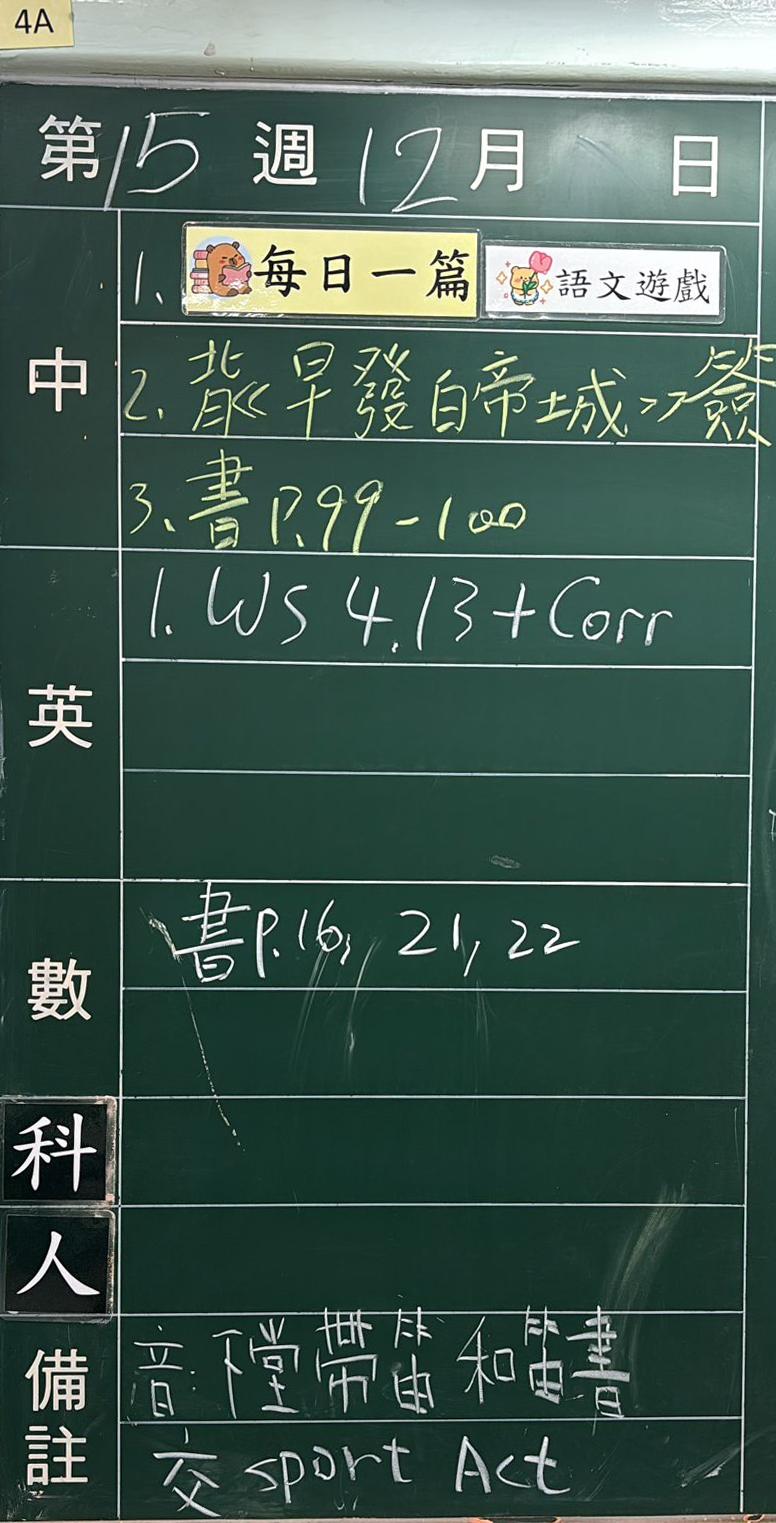 4A
第15週12月 日
中
1. 每日一篇 語文遊戲
2. 背<<早發白帝城>>簽
3. 書P.99-100
英
1. WS 4.13+Corr
數
書P.16, 21, 22
科
人
備註
音:下堂帶笛和笛書
交 sport Act